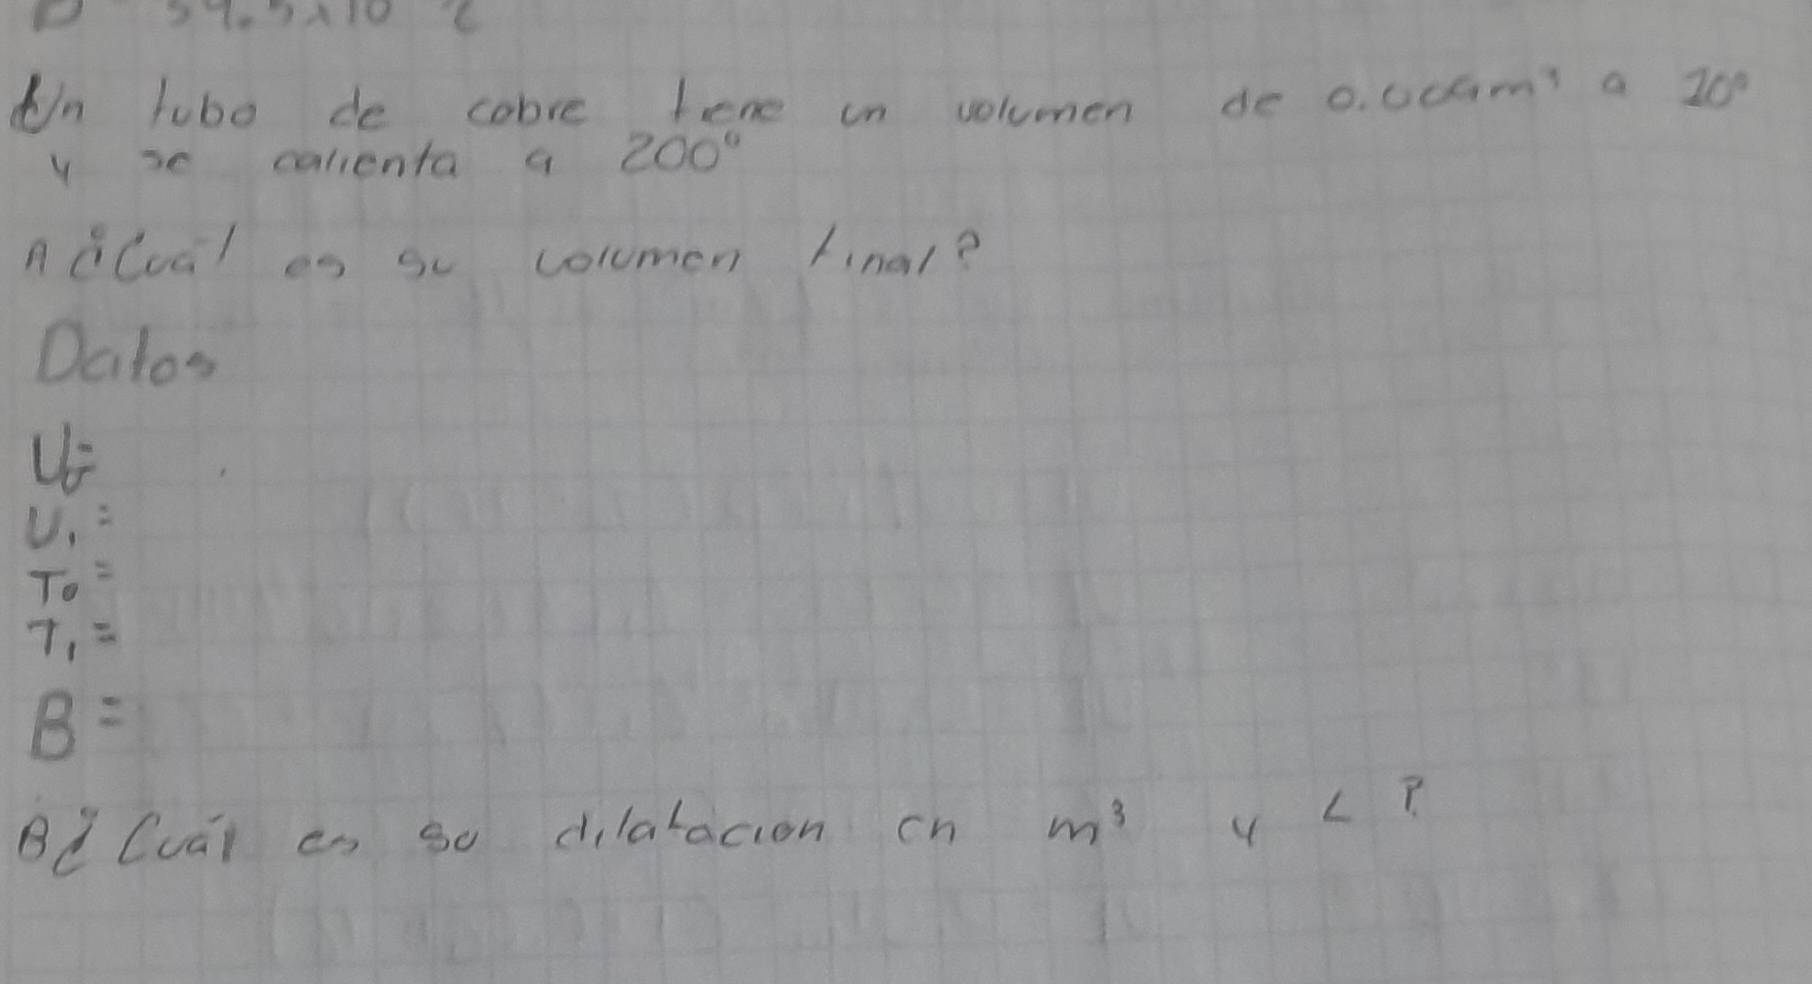 Un tubo de cobre tiene un volumen de 0.009m³ a 20°
y se calienta a 200°
A ¿Cuál es su volumen final?
Datos
Vf=
V₁=
T₀=
T₁=
B=
B ¿Cuál es su dilatacion en m³ y L?